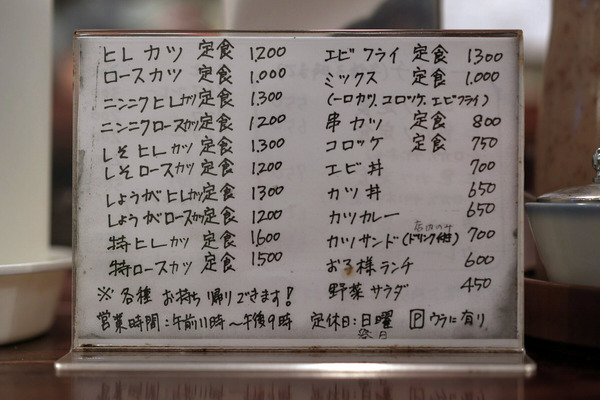 ヒレカツ 定食 1,200
ロースカツ 定食 1,000
ニンニクヒレカツ定食 1,300
ニンニクロースカツ定食 1,200
しそヒレカツ 定食 1,300
しそロースカツ 定食 1,200
しょうがヒレカツ定食 1,300
しょうがロースカツ定食 1,200
特ヒレカツ 定食 1,600
特ロースカツ 定食 1,500
エビフライ 定食 1,300
ミックス 定食 1,000
(一口カツ、コロッケ、エビフライ)
串カツ 定食 800
コロッケ 定食 750
エビ丼 700
カツ丼 650
カツカレー 650
店内のみ
カツサンド(ドリンク付) 700
お子様ランチ 600
野菜サラダ 450
※各種 お持ち帰りできます!
営業時間:午前11時〜午後9時 定休日:日曜 Pウラに有り
祭日